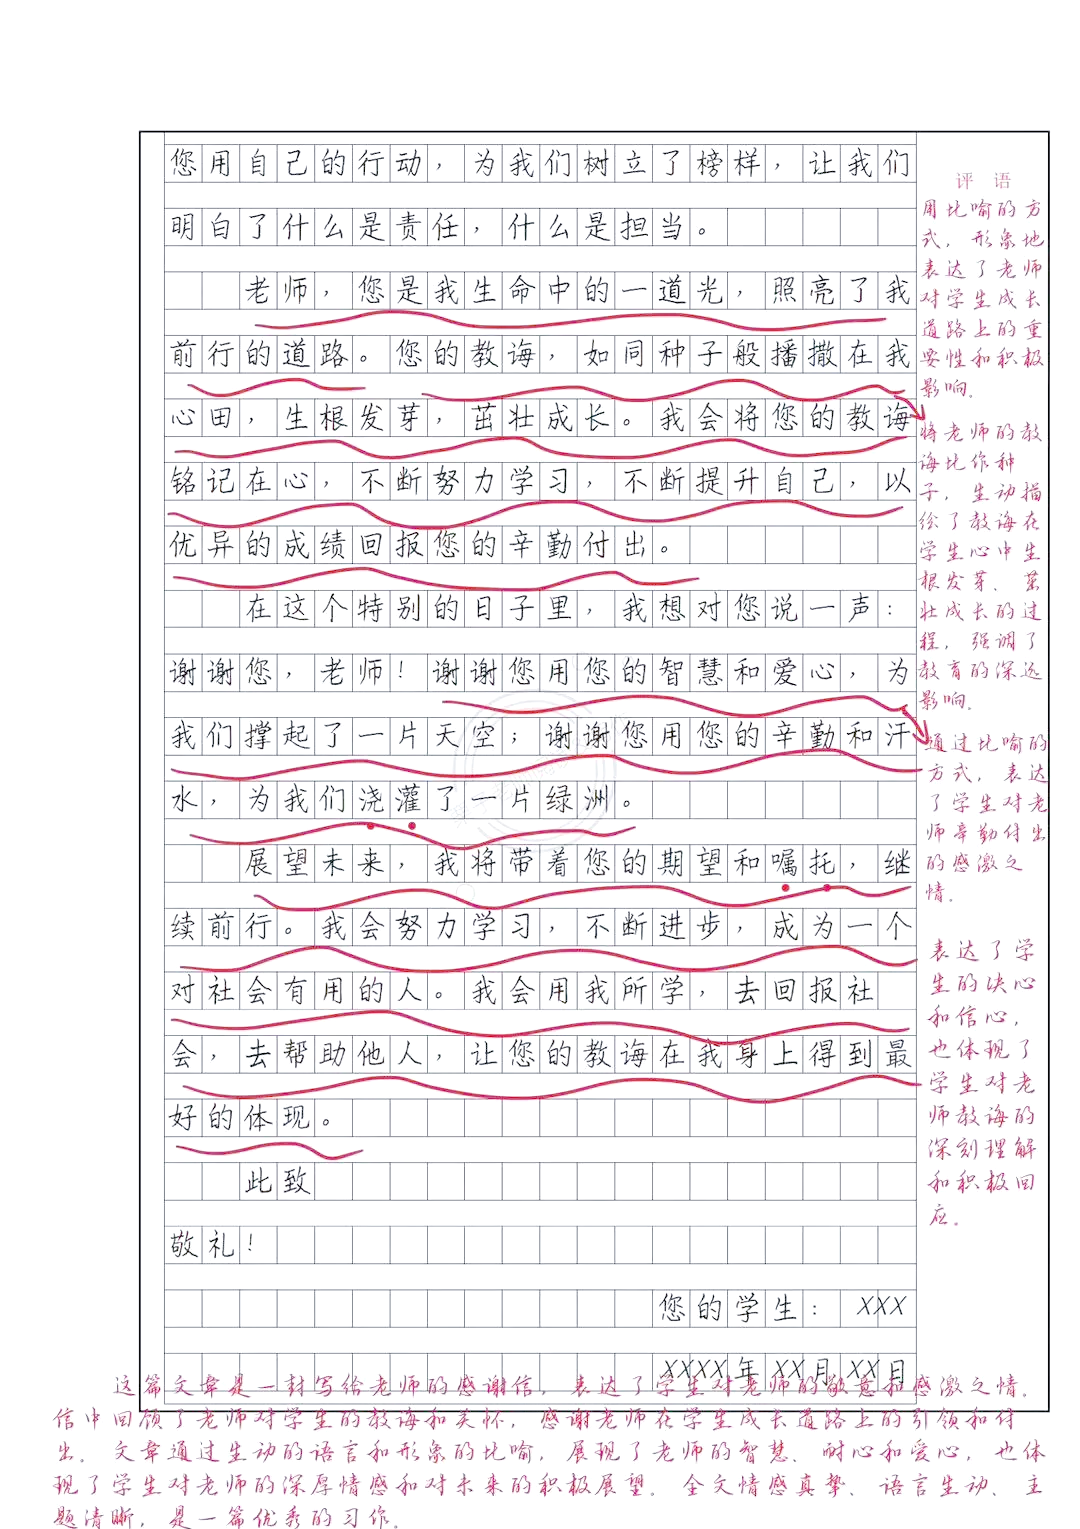 您用自己的行动，为我们树立了榜样，让我们
明白了什么是责任，什么是担当。
老师，您是我生命中的一道光，照亮了我
前行的道路。您的教诲，如同种子般播撒在我
心田，生根发芽，茁壮成长。我会将您的教诲
铭记在心，不断努力学习，不断提升自己，以
优异的成绩回报您的辛勤付出。
在这个特别的日子里，我想对您说一声：
谢谢您，老师！谢谢您用您的智慧和爱心，为
我们撑起了一片天空；谢谢您用您的辛勤和汗
水，为我们浇灌了一片绿洲。
展望未来，我将带着您的期望和嘱托，继
续前行。我会努力学习，不断进步，成为一个
对社会有用的人。我会用我所学，去回报社
会，去帮助他人，让您的教诲在我身上得到最
好的体现。
此致
敬礼！
您的学生：XXX
XXXX年XX月XX日
评 语
用比喻的方
式，形象地
表达了老师
对学生成长
道路上的重
要性和积极
影响。
将老师的教
诲比作种
子，生动描
绘了教诲在
学生心中生
根发芽、茁
壮成长的过
程，强调了
教育的深远
影响。
通过比喻的
方式，表达
了学生对老
师辛勤付出
的感激之
情。
表达了学
生的决心
和信心，
也体现了
学生对老
师教诲的
深刻理解
和积极回
应。
这篇文章是一封写给老师的感谢信，表达了学生对老师的敬意和感激之情。
信中回顾了老师对学生的教诲和关怀，感谢老师在学生成长道路上的引领和付
出。文章通过生动的语言和形象的比喻，展现了老师的智慧、耐心和爱心，也体
现了学生对老师的深厚情感和对未来的积极展望。全文情感真挚、语言生动、主
题清晰，是一篇优秀的习作。